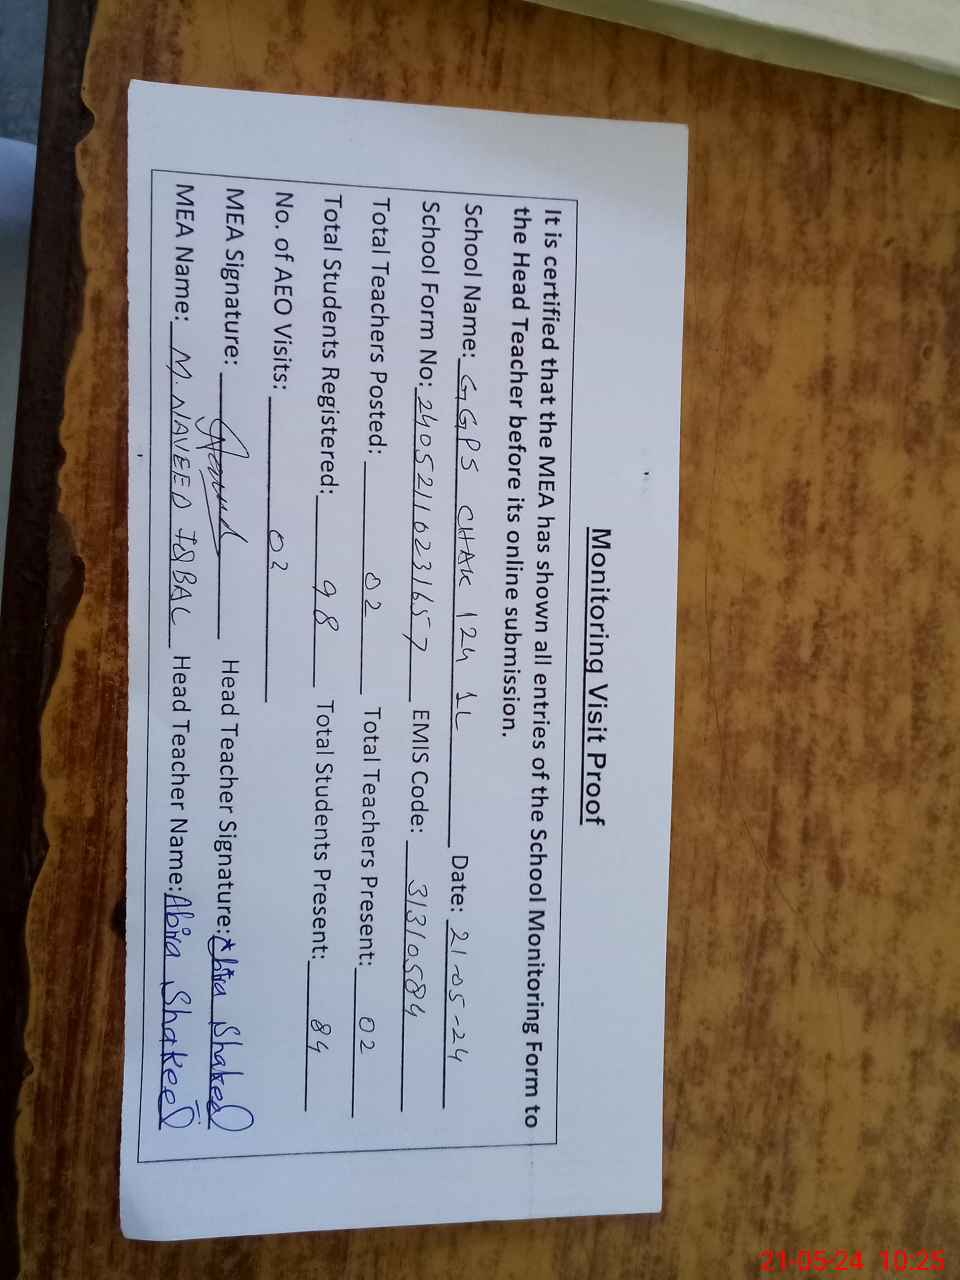 Monitoring Visit Proof
It is certified that the MEA has shown all entries of the School Monitoring Form to
the Head Teacher before its online submission.
School Name: GGPS CHAK 124 1L Date: 21-05-24
School Form No: 24052110231657 EMIS Code: 31310584
Total Teachers Posted: 02 Total Teachers Present: 02
Total Students Registered: 98 Total Students Present: 84
No. of AEO Visits: 02
MEA Signature: Head Teacher Signature: Abira Shakeel
MEA Name: M. NAVEED IQBAL Head Teacher Name: Abira Shakeel
21-05-24 10:25